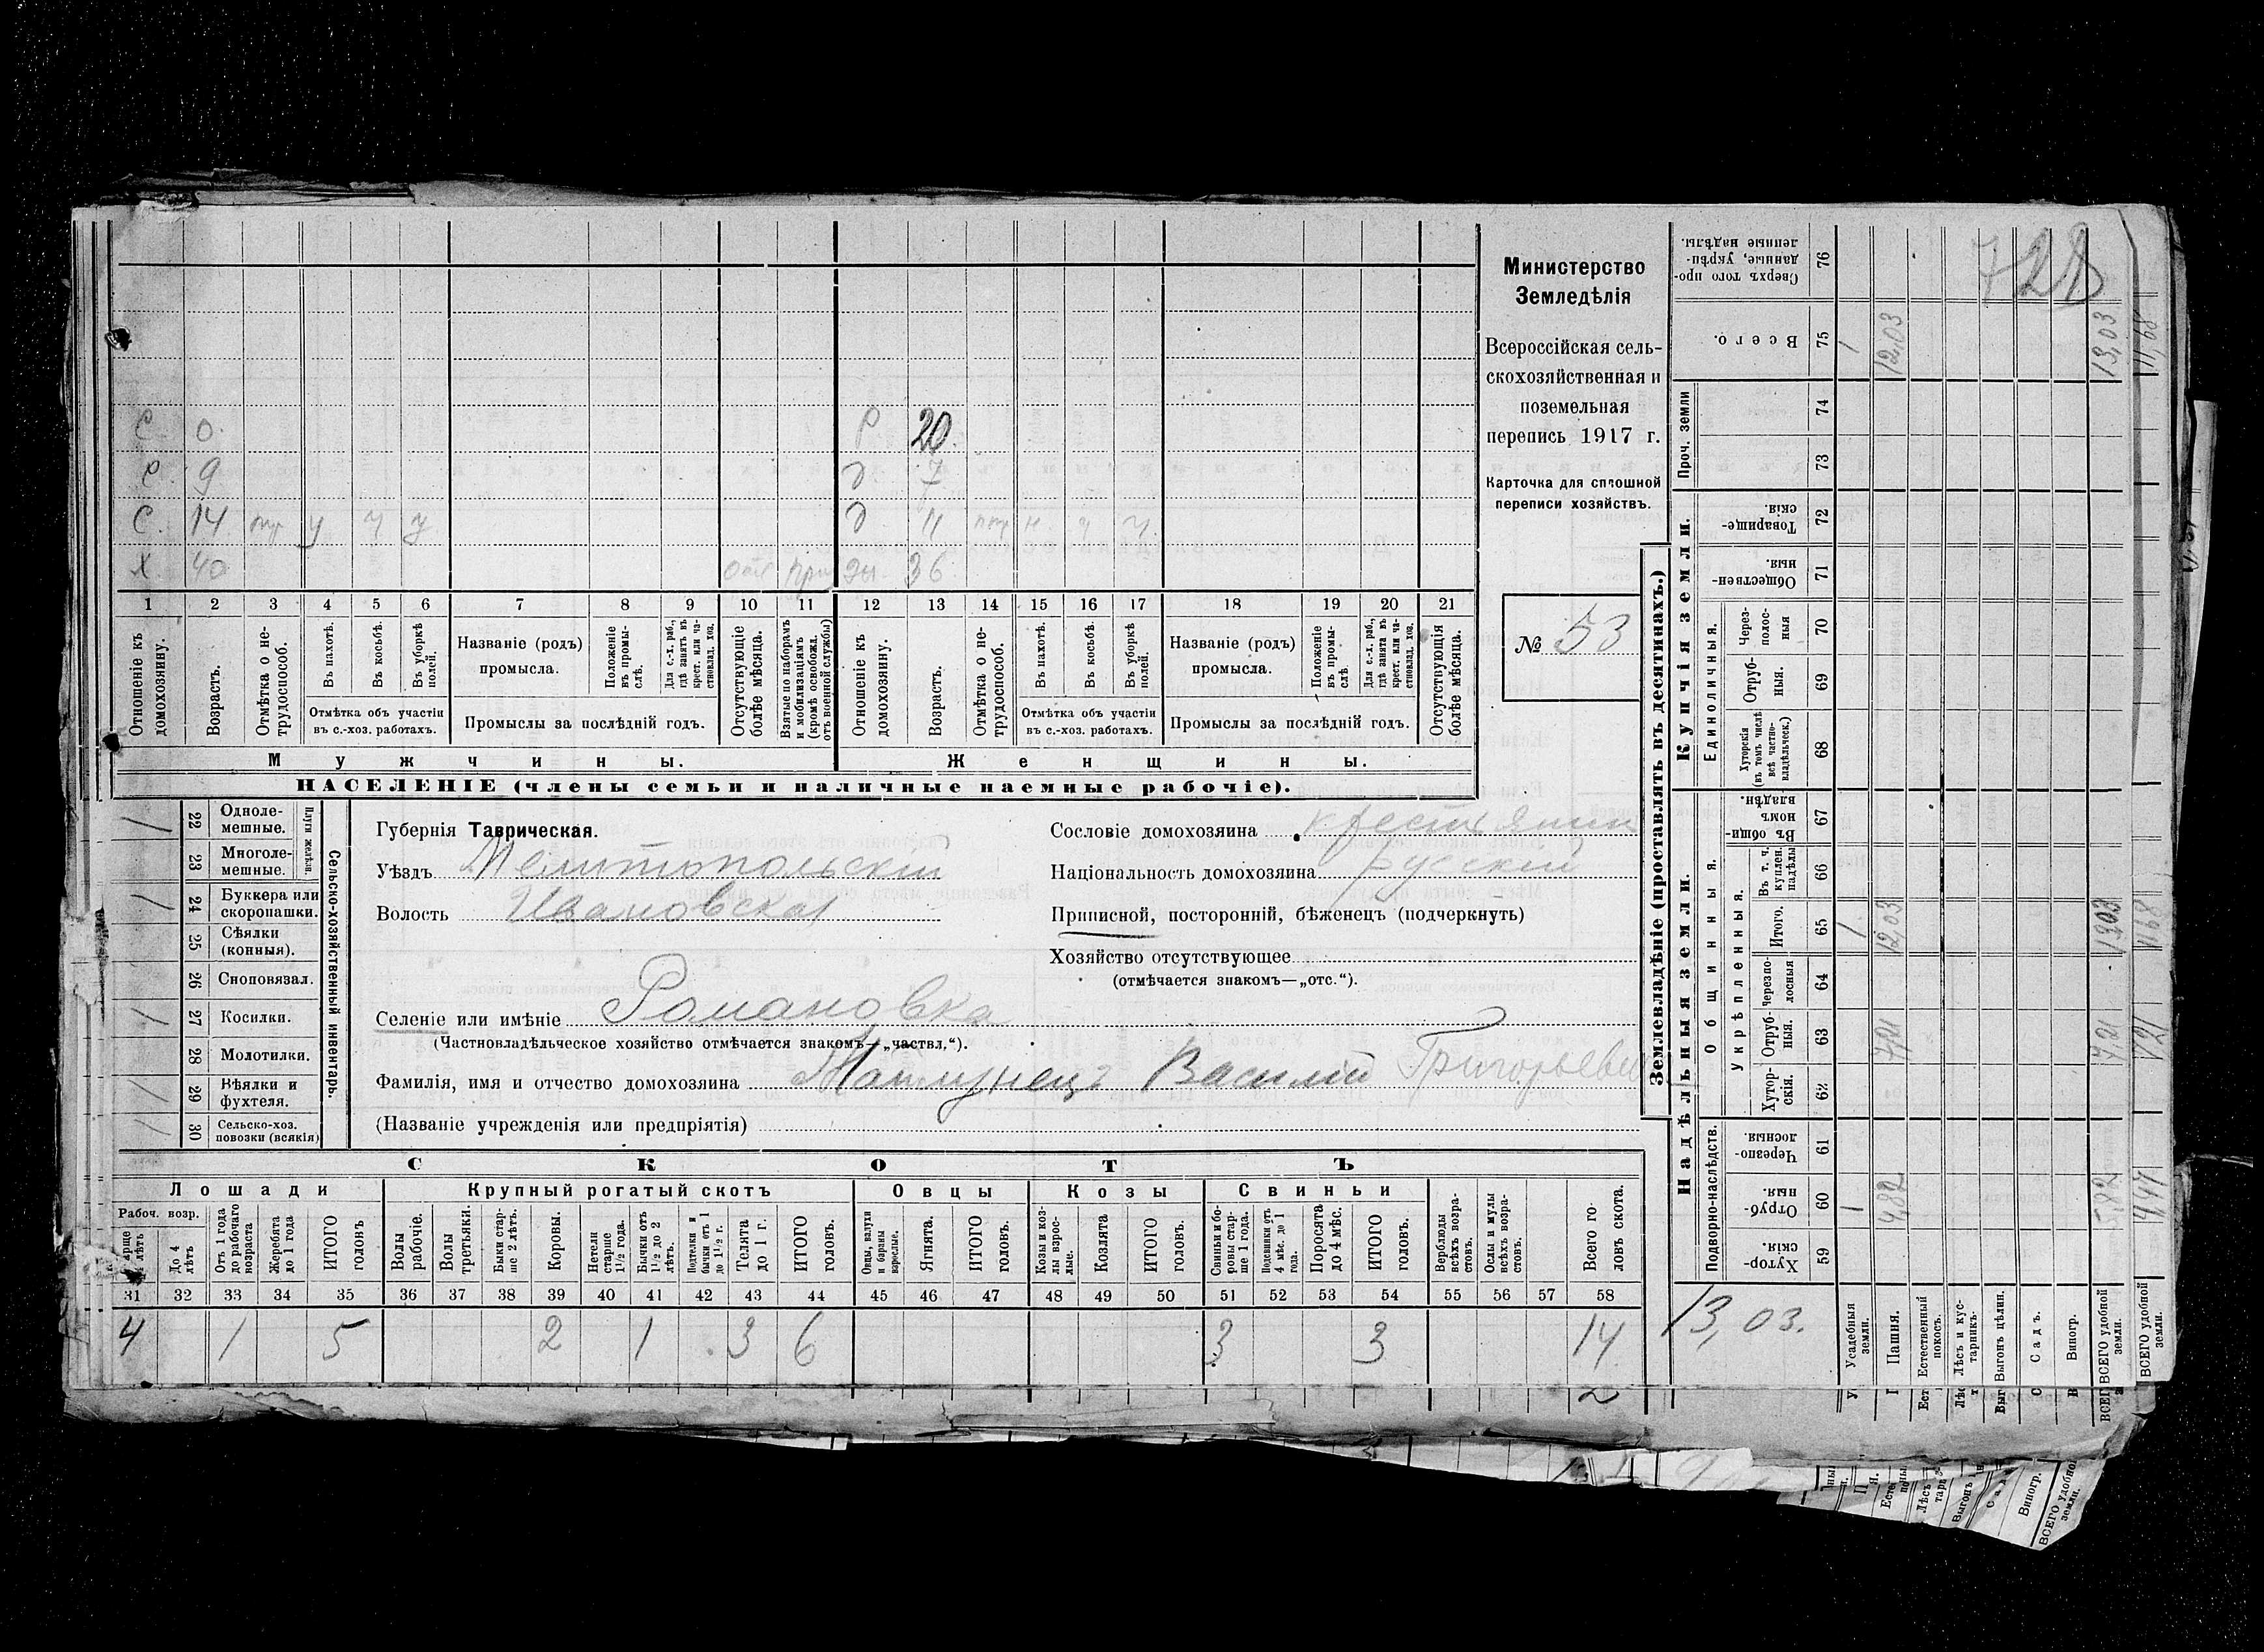 С. 0. Р 20.
С. 9 д. 7
С. 14 у у у д 11
Х 40 36
1 2 3 4 5 6 7 8 9 10 11 12 13 14 15 16 17 18 19 20 21
Отношеніе къ домохозяину.
Возрастъ.
Отмѣтка о не-трудоспособ.
Въ пахотѣ.
Въ косьбѣ.
Въ уборкѣ полей.
Отмѣтка объ участіи
въ с.-хоз. работахъ.
Названіе (родъ)
промысла.
Положеніе въ промы-слѣ.
Для с.-х. раб., гдѣ занятъ въ крест. или ча-стновлад. хоз.
Промыслы за послѣдній годъ.
Отсутствующіе болѣе мѣсяца.
Взятые по наборамъ и мобилизаціямъ (кромѣ освобожд. отъ военной службы)
Отношеніе къ домохозяину.
Возрастъ.
Отмѣтка о не-трудоспособ.
Въ пахотѣ.
Въ косьбѣ.
Въ уборкѣ полей.
Отмѣтка объ участіи
въ с.-хоз. работахъ.
Названіе (родъ)
промысла.
Положеніе въ промы-слѣ
Для с.-х. раб., гдѣ занята въ крест. или ча-стновлад. хоз.
Промыслы за послѣдній годъ.
Отсутствующія болѣе мѣсяца.
Мужчины. Женщины.
НАСЕЛЕНІЕ (члены семьи и наличные наемные рабочіе).
Министерство
Земледѣлія
Всероссійская сель-
скохозяйственная и
поземельная
перепись 1917 г.
Карточка для сплошной
переписи хозяйствъ.
№ 53
Сельско-хозяйственный инвентарь.
Плуги желѣзн.
/ 22 Одноле-
мешные.
23 Многоле-
мешные.
/ 24 Буккера или
скоропашки.
25 Сѣялки
(конныя).
26 Сноповязал.
/ 27 Косилки.
28 Молотилки.
/ 29 Вѣялки и
фухтеля.
/ 30 Сельско-хоз.
повозки (всякія)
Губернія Таврическая.
Уѣздъ Мелитопольскій
Волость Ивановская
Сословіе домохозяина крестьянин
Національность домохозяина русскій
Приписной, посторонній, бѣженецъ (подчеркнуть)
Хозяйство отсутствующее
(отмѣчается знакомъ—„отс.“).
Селеніе или имѣніе Романовка
(Частновладѣльческое хозяйство отмѣчается знакомъ—„частвл.“).
Фамилія, имя и отчество домохозяина Василій Григорьевич
(Названіе учрежденія или предпріятія)
СКОТЪ
Лошади Крупный рогатый скотъ Овцы Козы Свиньи
Рабоч. возр.
До 4 лѣтъ
Отъ 1 года до рабочаго возраста
Жеребята до 1 года
ИТОГО головъ
Волы рабочіе.
Волы третьяки.
Быки стар-ше 2 лѣтъ.
Коровы.
Нетели старше 1 1/2 года.
Бычки отъ 1 1/2 до 2 лѣтъ.
Подтелки и бычки отъ 1 до 1 1/2 г.
Телята до 1 г.
ИТОГО головъ.
Овцы, валухи и бараны взрослые.
Ягнята.
ИТОГО головъ.
Козы и коз-лы взрос-лые.
Козлята
ИТОГО головъ.
Свиньи и бо-ровы стар-ше 1 года.
Подсвинки отъ 4 мѣс. до 1 года.
Поросята до 4 мѣс.
ИТОГО головъ.
Верблюды всѣхъ возра-стовъ.
Ослы и мулы всѣхъ возра-стовъ.
Всего го-ловъ скота.
31 32 33 34 35 36 37 38 39 40 41 42 43 44 45 46 47 48 49 50 51 52 53 54 55 56 57 58
4 1 5 2 1 3 6 3 3 14
Землевладѣніе (проставлять въ десятинахъ.)
Надѣльныя земли. Купчія земли.
Подворно-наслѣдств.
Общинныя.
Укрѣпленныя.
Единоличныя.
Проч. земли
59 Хутор-скія.
60 Отруб-ныя.
61 Черезпо-лосныя
62 Хутор-скія.
63 Отруб-ныя.
64 Черезпо-лосныя
65 Итого.
66 Въ т. ч. куплен. надѣлы
67 Въ общин-номъ владѣн.
68 Хуторскія (въ томъ числѣ всѣ частно-владѣльческ.)
69 Отруб-ныя.
70 Через-полос-ныя
71 Обществен-ныя.
72 Товарище-скія.
73
74
75 Всего.
76 Сверхъ того про-данные, укрѣп-ленные надѣлы.
13,03.
Усадебныя земли. 1 1. 1
Пашня. 4,82 7,21 12,03 12,03
Естественный покосъ.
Лѣсъ и кус-тарникъ.
Выгонъ цѣлин.
Садъ.
Виногр.
ВСЕГО удобной земли. 5,82 7,21 13,03 13,03
ВСЕГО удобной земли. 11,68 11,68
728
Виногр.
ВСЕГО удобной земли.